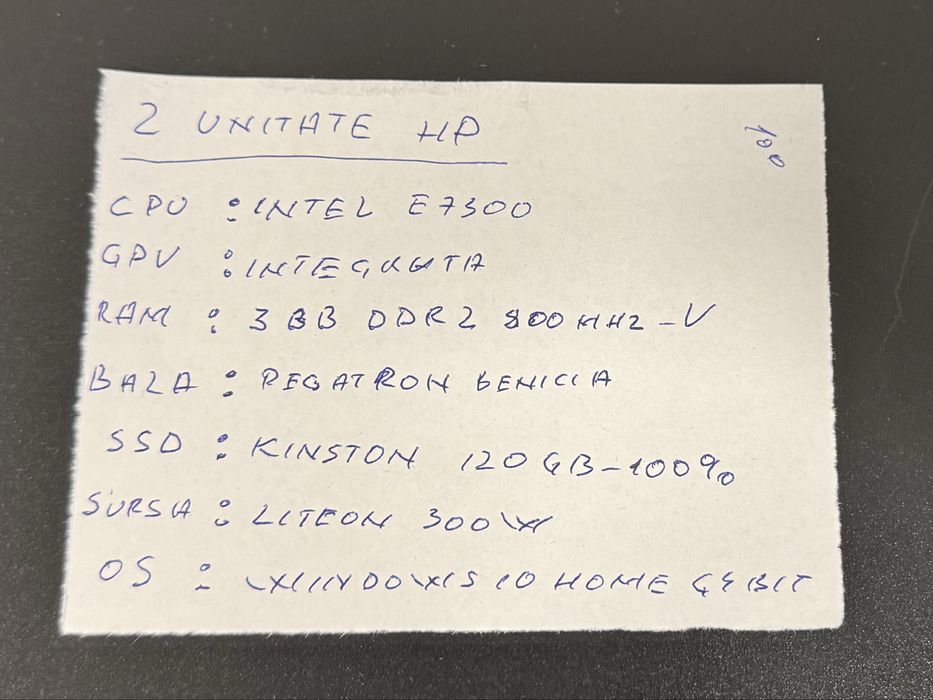 2 UNITATE HP
100
CPU : INTEL E7300
GPU : INTEGRATA
RAM : 3 GB DDR2 800 MHZ - V
BAZA : PEGATRON BENICIA
SSD : KINSTON 120 GB - 100%
SURSA : LITEON 300W
OS : WINDOWS 10 HOME 64 BIT